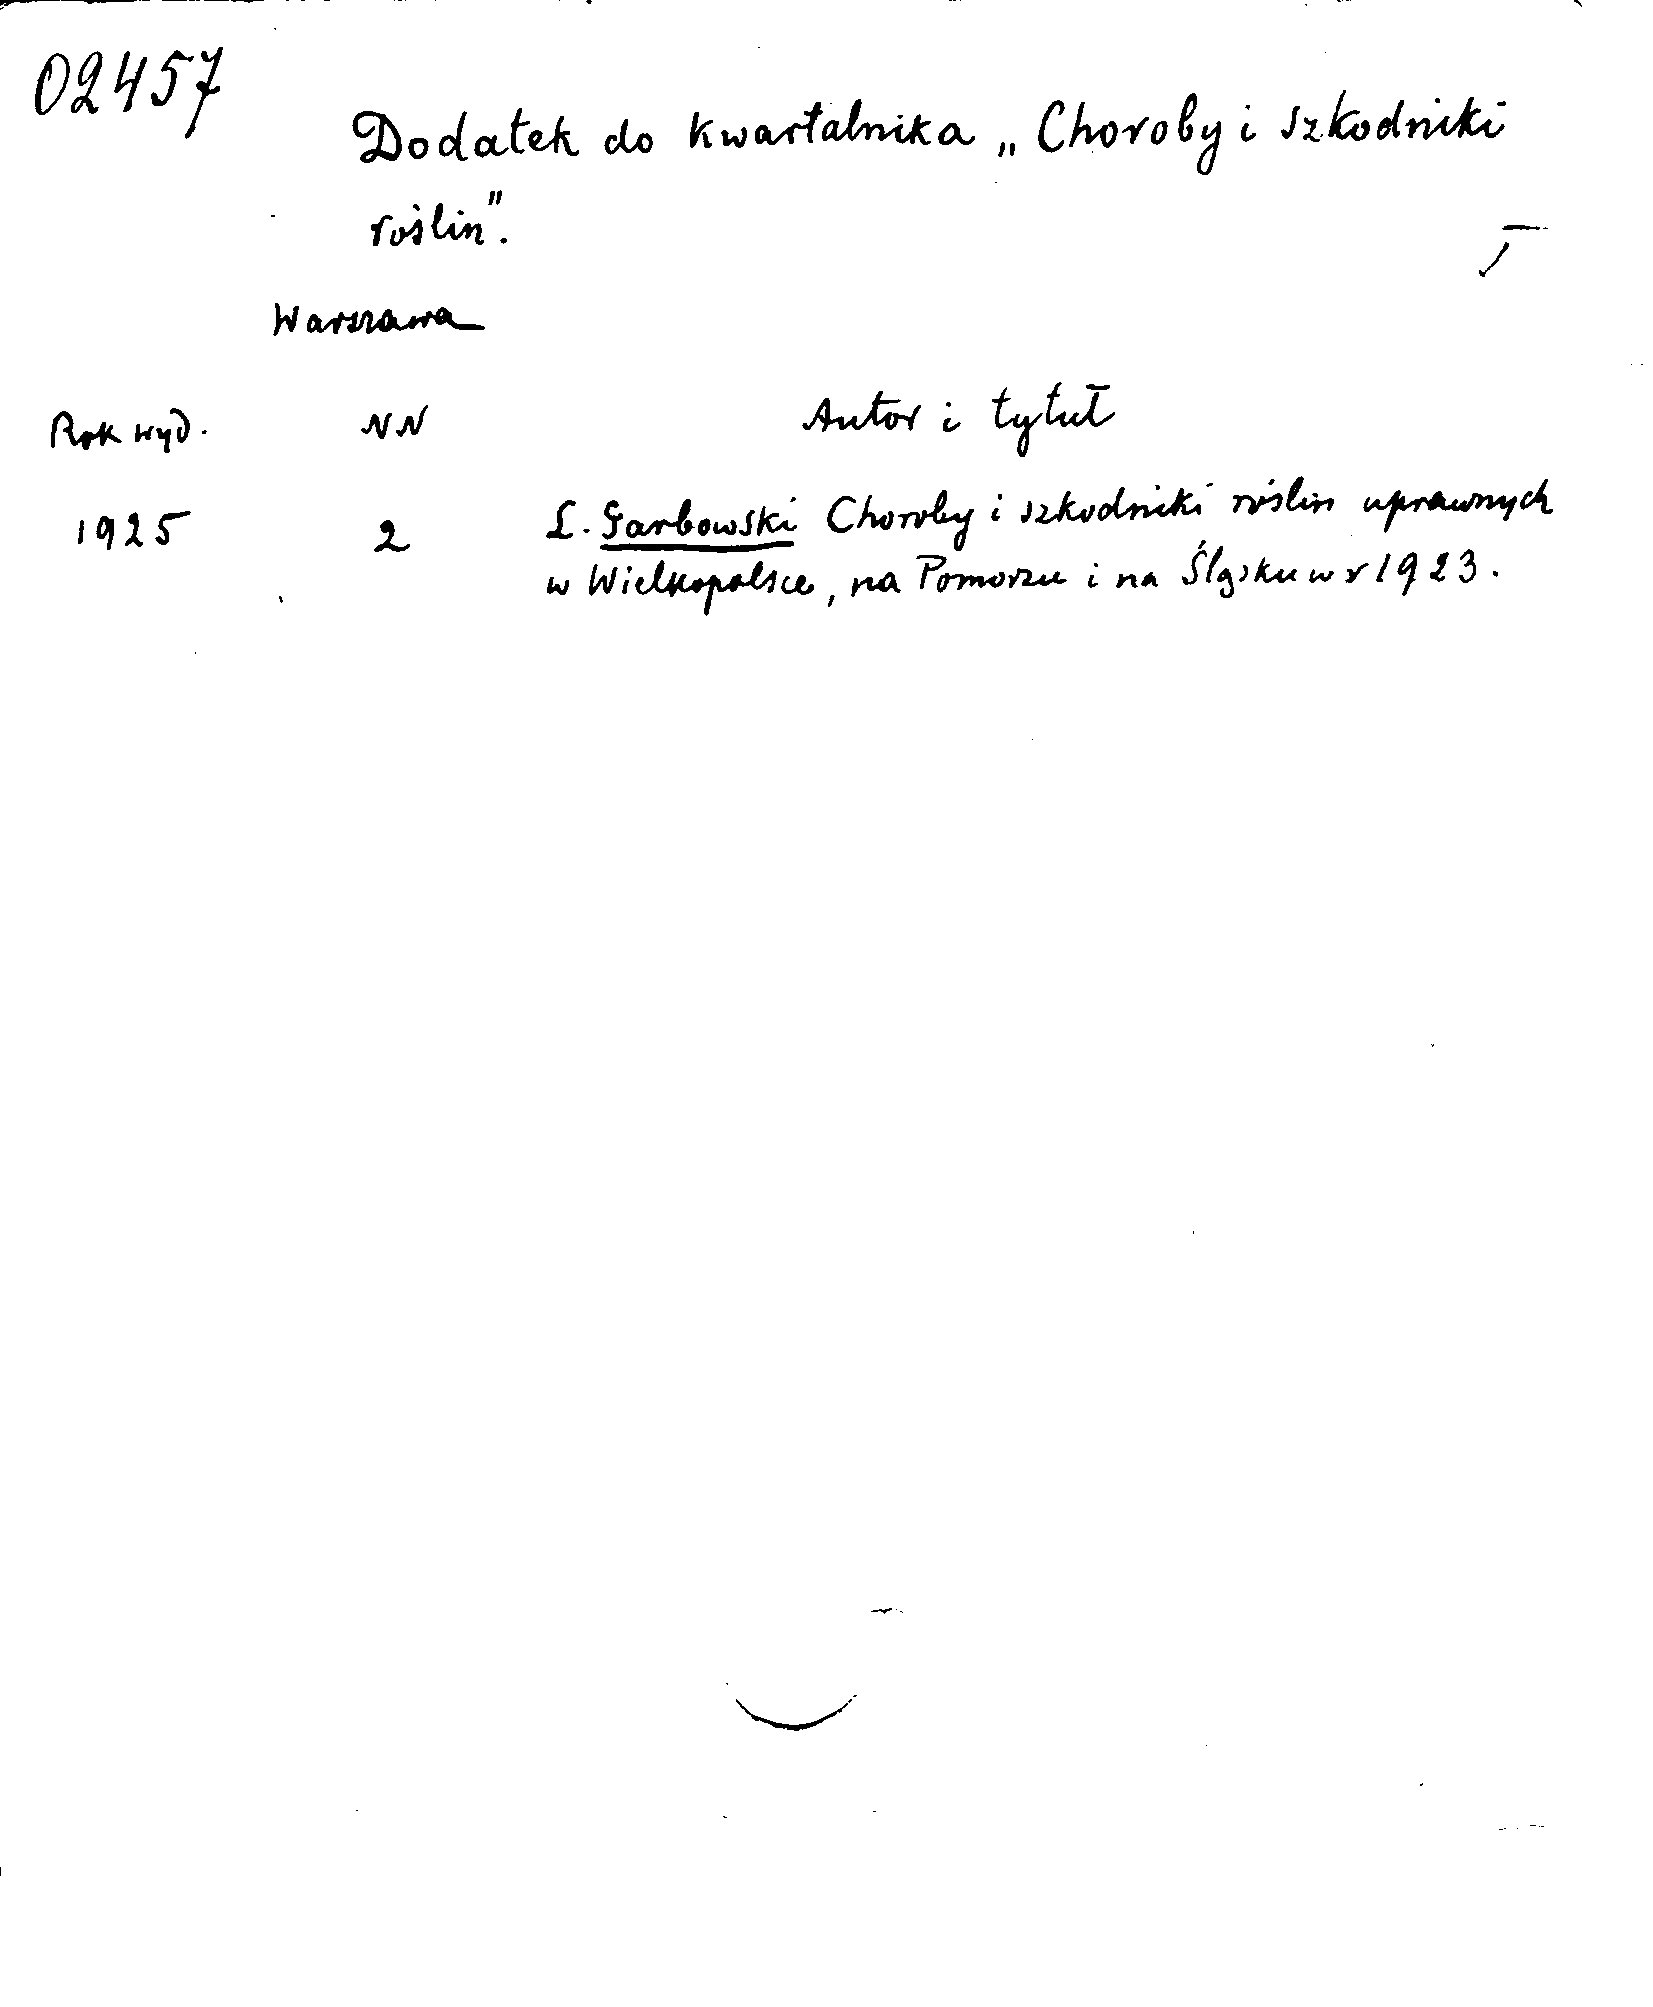 02457
Dodatek do kwartalnika „Choroby i szkodniki
roślin".
Warszawa
Rok wyd. NN Autor i tytuł
1925 2 L. Garbowski Choroby i szkodniki roślin uprawnych
w Wielkopolsce, na Pomorzu i na Śląsku w r 1923.